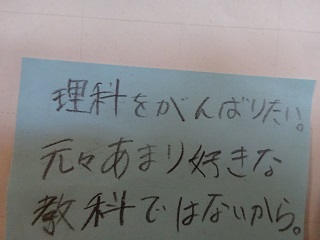 理科をがんばりたい。
元々あまり好きな
教科ではないから。